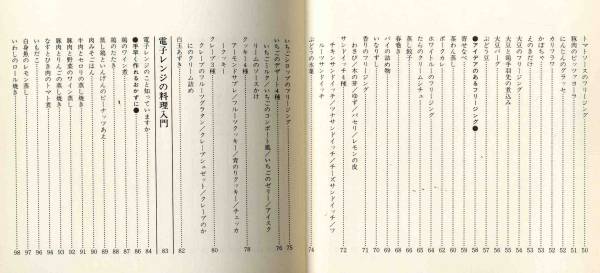 トマトソースのフリージング……50
豚肉のピッツァヨーラ……51
にんじんのグラッセ……51
カリフラワー……52
かぼちゃ……52
えのきだけ……53
大豆のフリージング……54
大豆と鶏手羽先の煮込み……54
大豆パープ……56
ぶどう豆……57
●アイデアのあるフリージング●……58
寄せなべ……58
茶わん蒸し……60
ポークカレー……62
ホワイトルーのフリージング……64
たらのクリームシチュー……64
蒸し餃子……66
春巻き……68
パイの詰め物……69
いなりずし……70
香りのフリージング……71
わさび／木の芽／ゆず／パセリ／レモンの皮
サンドイッチ4種……72
チキンサンドイッチ／ツナサンドイッチ／チーズサンドイッチ／フルーツサンドイッチ
ぶどうの氷菓……74
いちごシロップのフリージング……75
いちごのデザート4種……76
いちごミルク／いちごのコンポート風／いちごのゼリー／アイスクリームのソースかけ
クッキー4種……78
アーモンドサブレ／フルーツクッキー／青のりクッキー／チェッカーズ
クレープ3種……80
クレープのフルーツグラタン／クレープシュゼット／クレープのかにのクリーム詰め
白玉あずき……82
電子レンジの料理入門……83
電子レンジのこと知っていますか……84
●手早く作れるおかずに●……86
鶏のワイン煮……86
鶏のたたき……87
蒸し鶏といんげんのピーナッツあえ……88
肉みそごはん……89
牛肉とセロリの蒸し焼き……90
豚肉と野菜のワイン蒸し……91
豚肉とりんごの蒸し焼き……92
なすとひき肉のトマト煮……93
いもだんご……94
白身魚のレモン蒸し……96
いわしのロール焼き……97
98